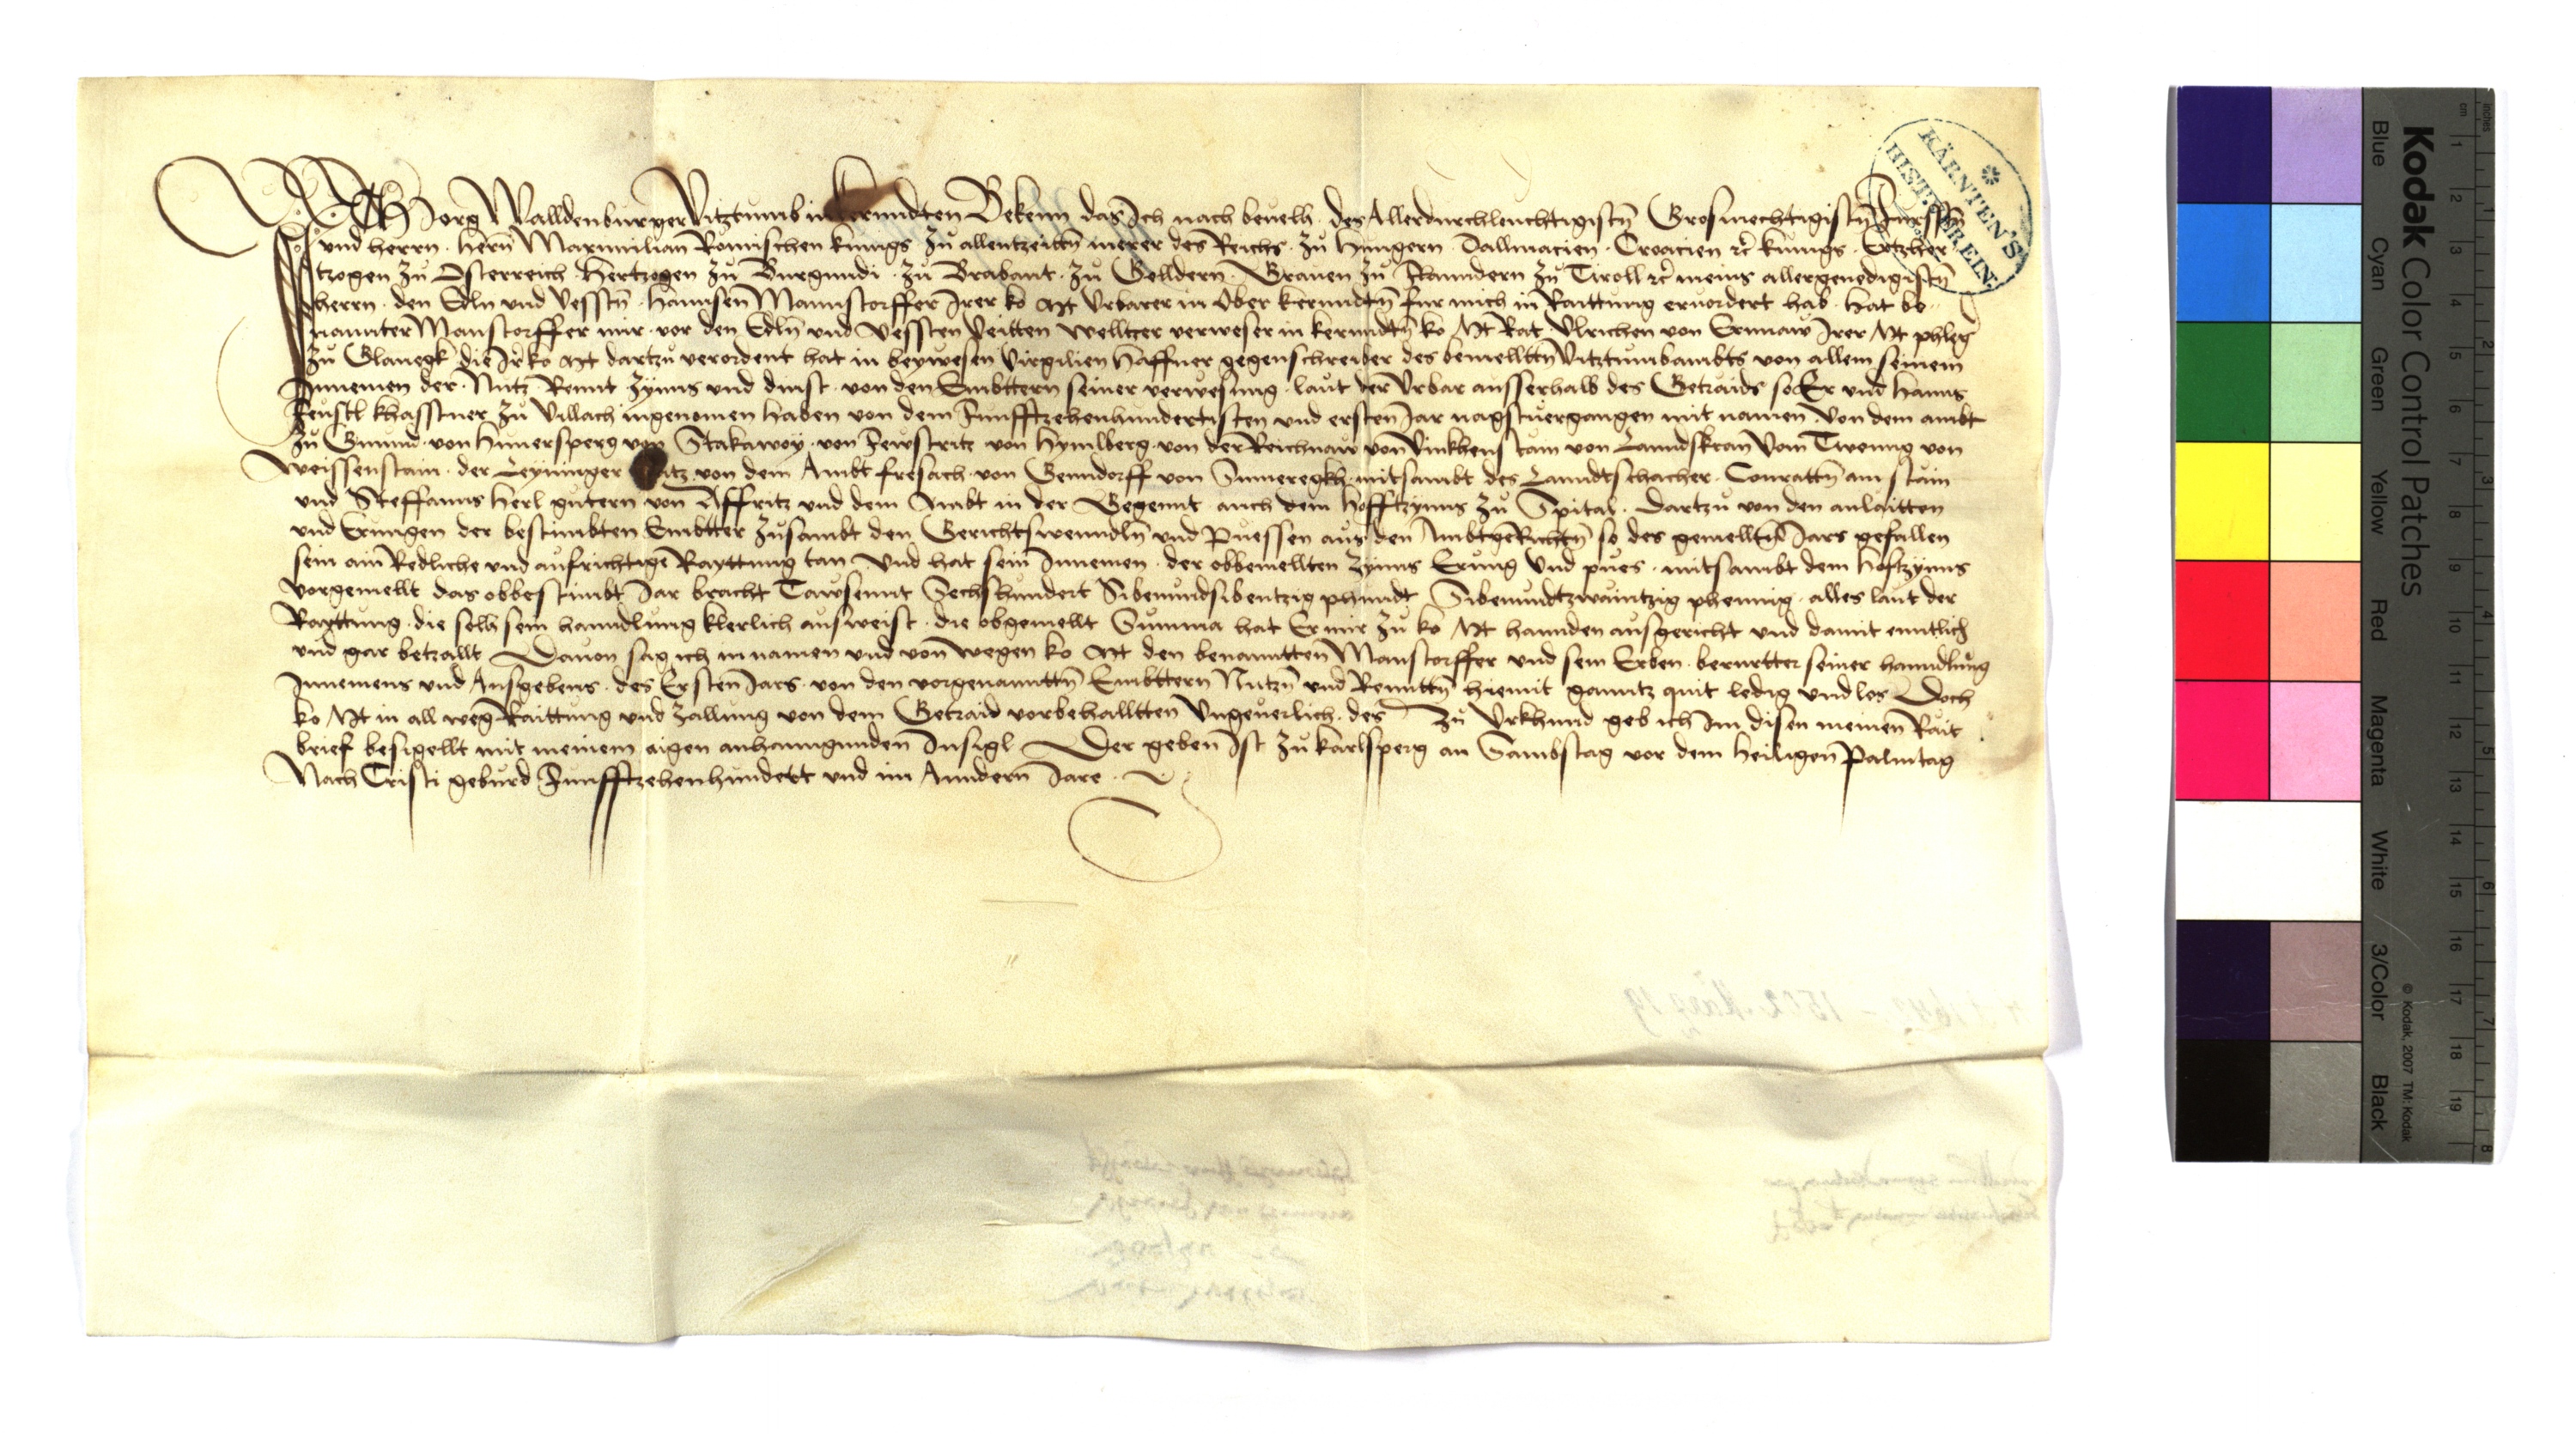 Ich Jorg Walldenburger Vitztumb in Kernndten Bekenn das Ich nach beuelh des Allerdurchleuchtigistn̄ Grosmechtigistn̄ Fursstn̄
und herrn hern̄ Maximilian Romischen kunigs zu allentzeittn̄ merer des Reichs zu Hungern Dallmacien Croacien ꝛc̄ kunigs Ertzher
tzogen zu Osterreich Hertzogen zu Burgundi zu Brabant zu Gelldern Grauen zu Flanndern zu Tiroll ꝛc̄ meins allergenedigistn̄
herrn den Edln und Vesstn̄ Hannsen Mannstorffer Irer ko Mt Vrbarer in Ober kernndtn̄ fur mich in Raittung eruordert hab Hat be
nannter Manstorffer mir vor den Edln̄ und Vessten Veitten Welltzer verweser in kernndtn̄ ko Mt Rat Vlrichen von Ernnaw Irer Mt phleg
zu Glanegk die Ir ko Mt dartzu verordent hat in beywesen Virgilien Haffner gegenschreiber des bemelltn̄ Vitztumbambts von allem seinem
Innemen der Nutz Rennt zynns und dinst von den Embttern seiner verwesung laut der Vrbar ausserhalb des Getraids so Er und Hanns
Feustl khasstner zu Villach ingenomen haben von dem Funfftzehenhundertisten und ersten Jar nagstuergangen mit namen von dem ambt
zu Gmund von Himersperg von Stakawoy von Fewstritz von Hymlberg von der Reichnaw von Vinkhenstain von Lanndskron Vom Tweng von
Weissenstain der Leyninger von dem Ambt fresach von Genndorff von Sumeregkh mitsambt des Lanndtschacher Conrattn̄ am stain
und Steffanns Herl gutern von Affritz und dem Ambt in der Gegennt auch dem Hofftzynns zu Spital Dartzu von den anlaitten
und Erungen der bestimbten Embtter zusambt den Gerichtswenndln̄ und Puessen aus den Ambtgerichtn̄ so des gemelltn̄ Jars gefallen
sein ain Redliche und aufrichtige Rayttung tan Und hat sein Innemen der obbemellten zynns Erung Und pues mitsambt dem Hoftzynns
vorgemellt das obbestimbt Jar bracht Tawsennt Sechshundert Sibenundsibentzig phundt Sibenundtzwaintzig phennig alles laut der
Rayttung die solh sein hanndlung klerlich ausweist die obgemellt Summa hat Er mir zu ko Mt hannden ausgericht und damit enntlich
und gar betzallt Dauon sag ich in namen und von wegen ko Mt den benanntten Manstorffer und sein Erben berurtter seiner hanndlung
Innemens und Ausgebens des Ersten Jars von den vorgenanntn̄ Embttern Nutzn̄ und Renntn̄ hiemit ganntz quit ledig und los Doch
ko Mt in allweg Raittung und zallung von dem Getraid vorbehalltten Ungeuerlich des zu Vrkhund geb ich Im disen meinen Rait
brief besigellt mit meinem aigen anhanngunden Insigl Der geben Ist zu karlsperg an Sambstag vor dem Heiligen Palmtag
Nach Cristi geburd Funfftzehenhundert und im Anndern Jare
KÄRNTEN'S
HIST. VEREIN.
Kodak Color Control Patches
Blue Cyan Green Yellow Red Magenta White 3/Color Black
© Kodak, 2007 TM: Kodak
inches 1 2 3 4 5 6 7 8
cm 1 2 3 4 5 6 7 8 9 10 11 12 13 14 15 16 17 18 19